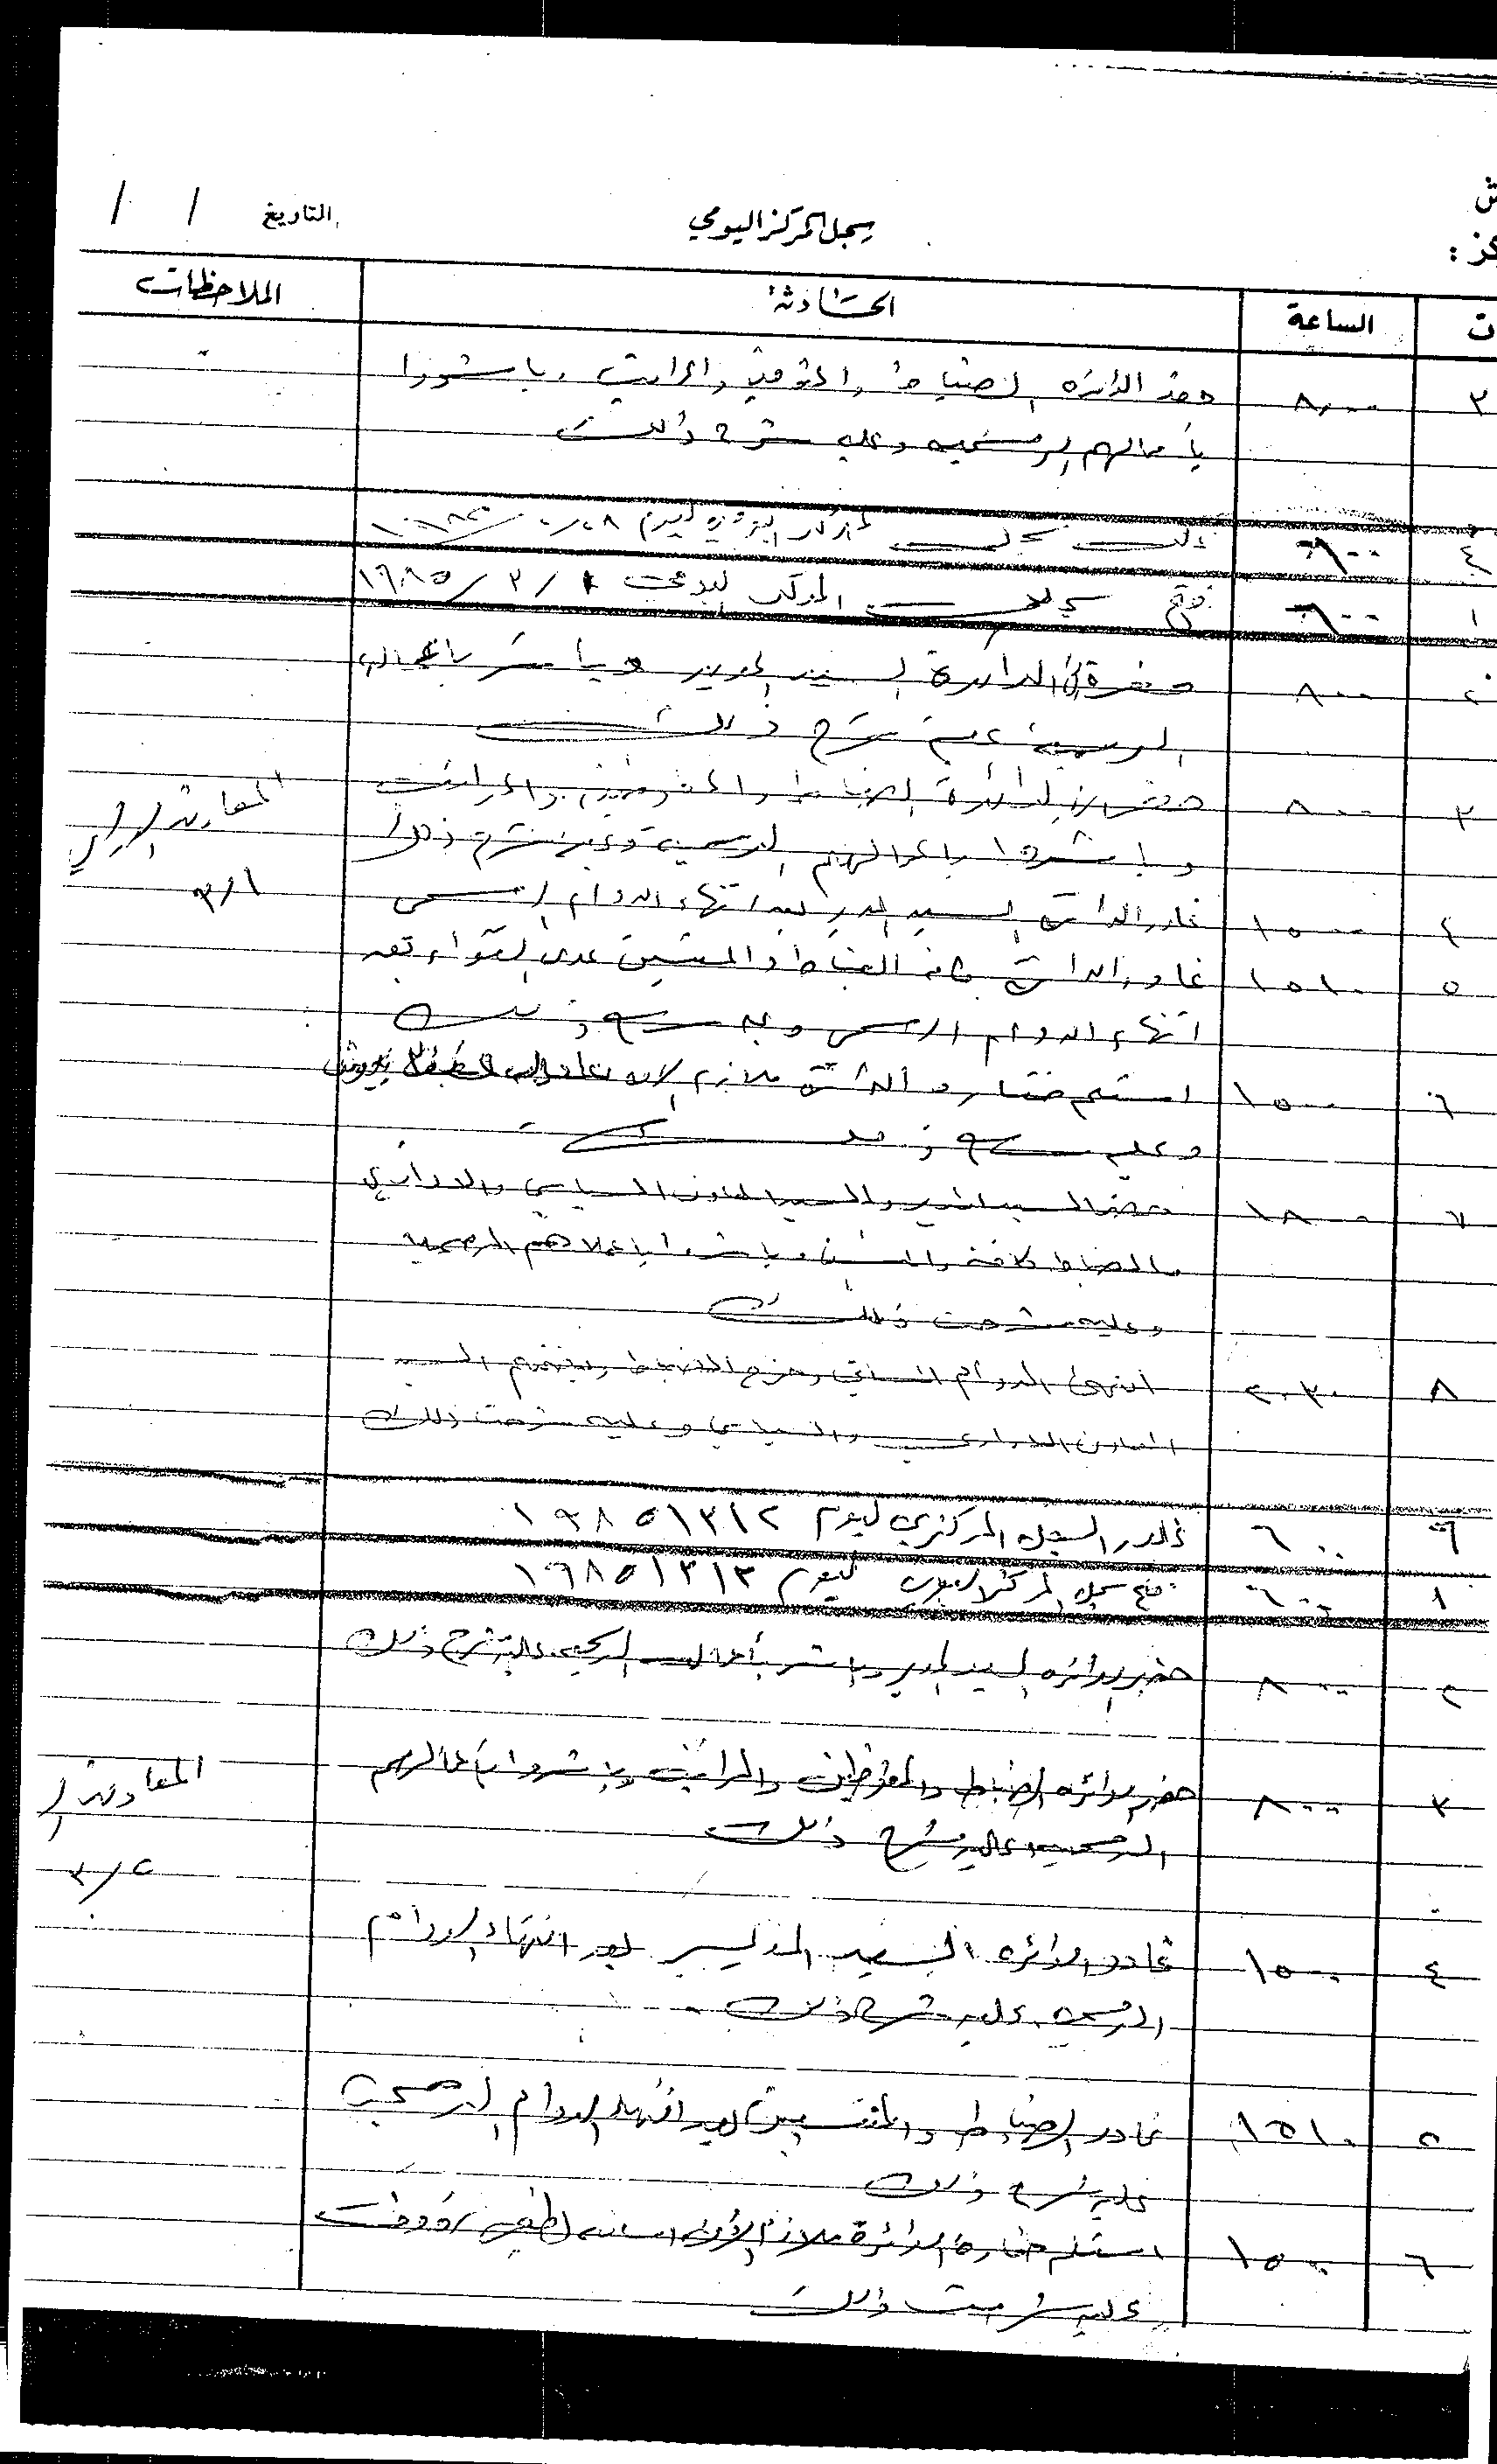 سجل المركز اليومي
التاريخ / /
ش
كز :
ت الساعة الحادثة الملاحظات
٣ ٨٠٠ حضر الدائرة الضباط والمفوضين والمراتب وباشروا
بأعمالهم الرسمية وعليه شرح ذلك
٤ ٦٠٠ سجل المركز اليومي ليوم
١ ٦٠٠ فتح سجل المركز اليومي ١ / ٣ / ١٩٨٥
٢ ٨٠٠ حضر إلى الدائرة السيد المدير وباشر باعماله
الرسمية عليه شرح ذلك
٣ ٨٠٠ حضر إلى الدائرة الضباط والمفوضين والمراتب
وباشروا باعمالهم الرسمية وعليه شرح ذلك
المعاون الاداري
٣/١
٤ ١٥٠٠ غادر الدائرة السيد المدير بعد انتهاء الدوام الرسمي
٥ ١٥١٠ غادر الدائرة كافة الضباط والمنتسبين عدى الخفراء بعد
انتهاء الدوام الرسمي وعليه شرح ذلك
٦ ١٥٠٠ استلم خفارة الدائرة ملازم الاول
وعليه شرح ذلك
٧ ١٨٠٠ حضر السيد المدير والسيد المعاون السياسي والاداري
والضباط كافة وباشروا باعمالهم الرسمية
وعليه شرحت ذلك
٨ ٢٠٣٠ انتهى الدوام المسائي وخرج الضباط وبضمنهم السيد
المعاون الاداري والسياسي وعليه شرحت ذلك
٩ ٦٠٠ السجل المركزي ليوم ١٩٨٥/٣/٢
١ ٦٠٠ فتح سجل المركز اليومي ليوم ١٩٨٥/٣/٢
٢ ٨٠٠ حضر الدائرة السيد المدير وباشر بأعماله الرسمية عليه شرح ذلك
٣ ٨٠٠ حضر الدائرة الضباط والمفوضين والمراتب وباشروا بأعمالهم
الرسمية عليه شرح ذلك
المعاون
٣/٢
٤ ١٥٠٠ غادر الدائرة السيد المدير بعد انتهاء الدوام
الرسمي عليه شرح ذلك
٥ ١٥١٠ غادر الضباط والمنتسبين بعد انتهاء الدوام الرسمي
عليه شرح ذلك
٦ ١٥٠٠ استلم خفارة الدائرة ملازم الأول لطيف
عليه شرحت ذلك